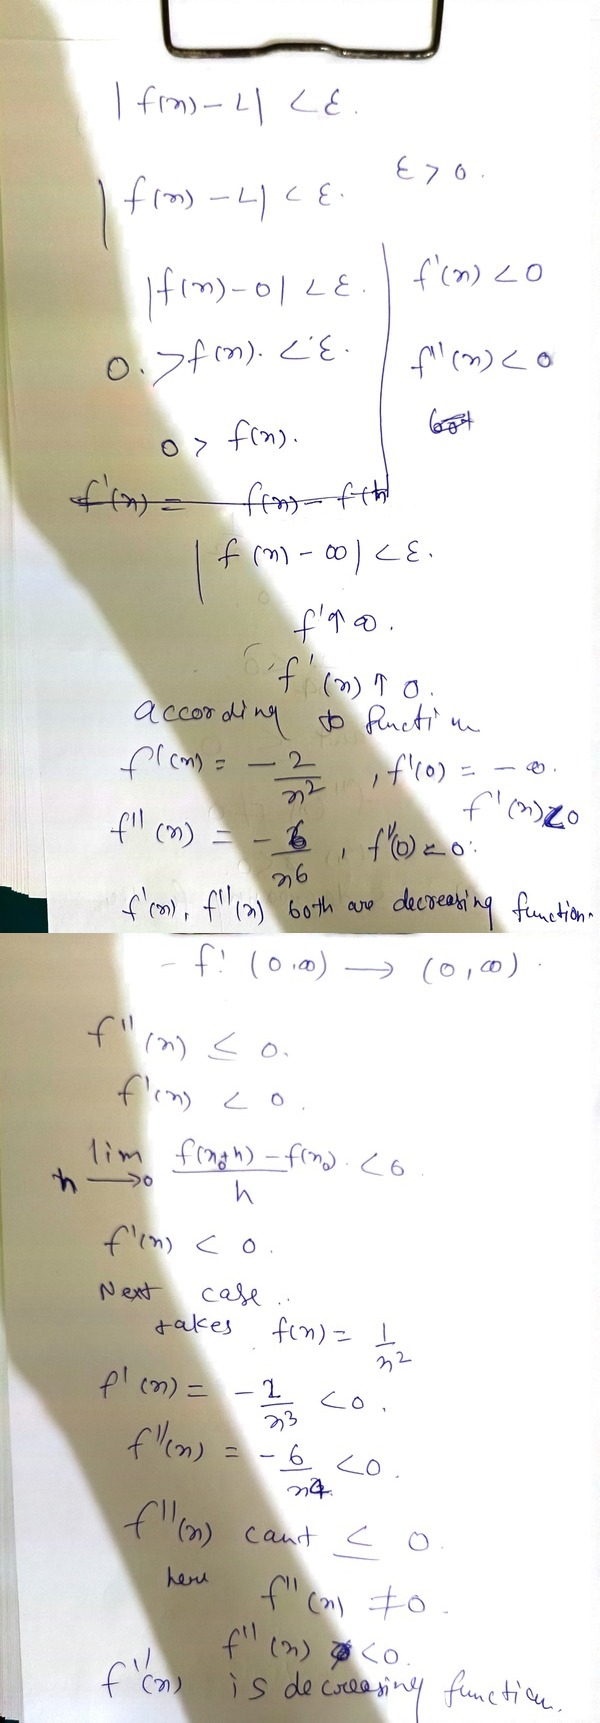 |f(n) - L| < ε.
ε > 0.
|f(n) - L| < ε.
|f(n) - 0| < ε.
f'(n) < 0
0. > f(n). < ε.
f''(n) < 0
0 > f(n).
f'(n) = f(n) - f(h
|f(n) - ∞| < ε.
f' ↑ ∞.
f'(n) ↑ 0.
according to function
f'(n) = - 2/n², f'(0) = - ∞.
f'(n) < 0
f''(n) = - 6/n6, f''(0) < 0.
f'(n), f''(n) both are decreasing function.
- f: (0,∞) → (0,∞).
f''(n) ≤ 0.
f'(n) < 0.
lim h→0 f(n₀+h) - f(n₀)/h. < 0.
f'(n) < 0.
Next case..
takes f(n) = 1/n²
f'(n) = - 2/n3 < 0.
f''(n) = - 6/n4 < 0.
f''(n) can't ≤ 0.
here f''(n) ≠ 0.
f''(n) < 0.
f''(n) is decreasing function.